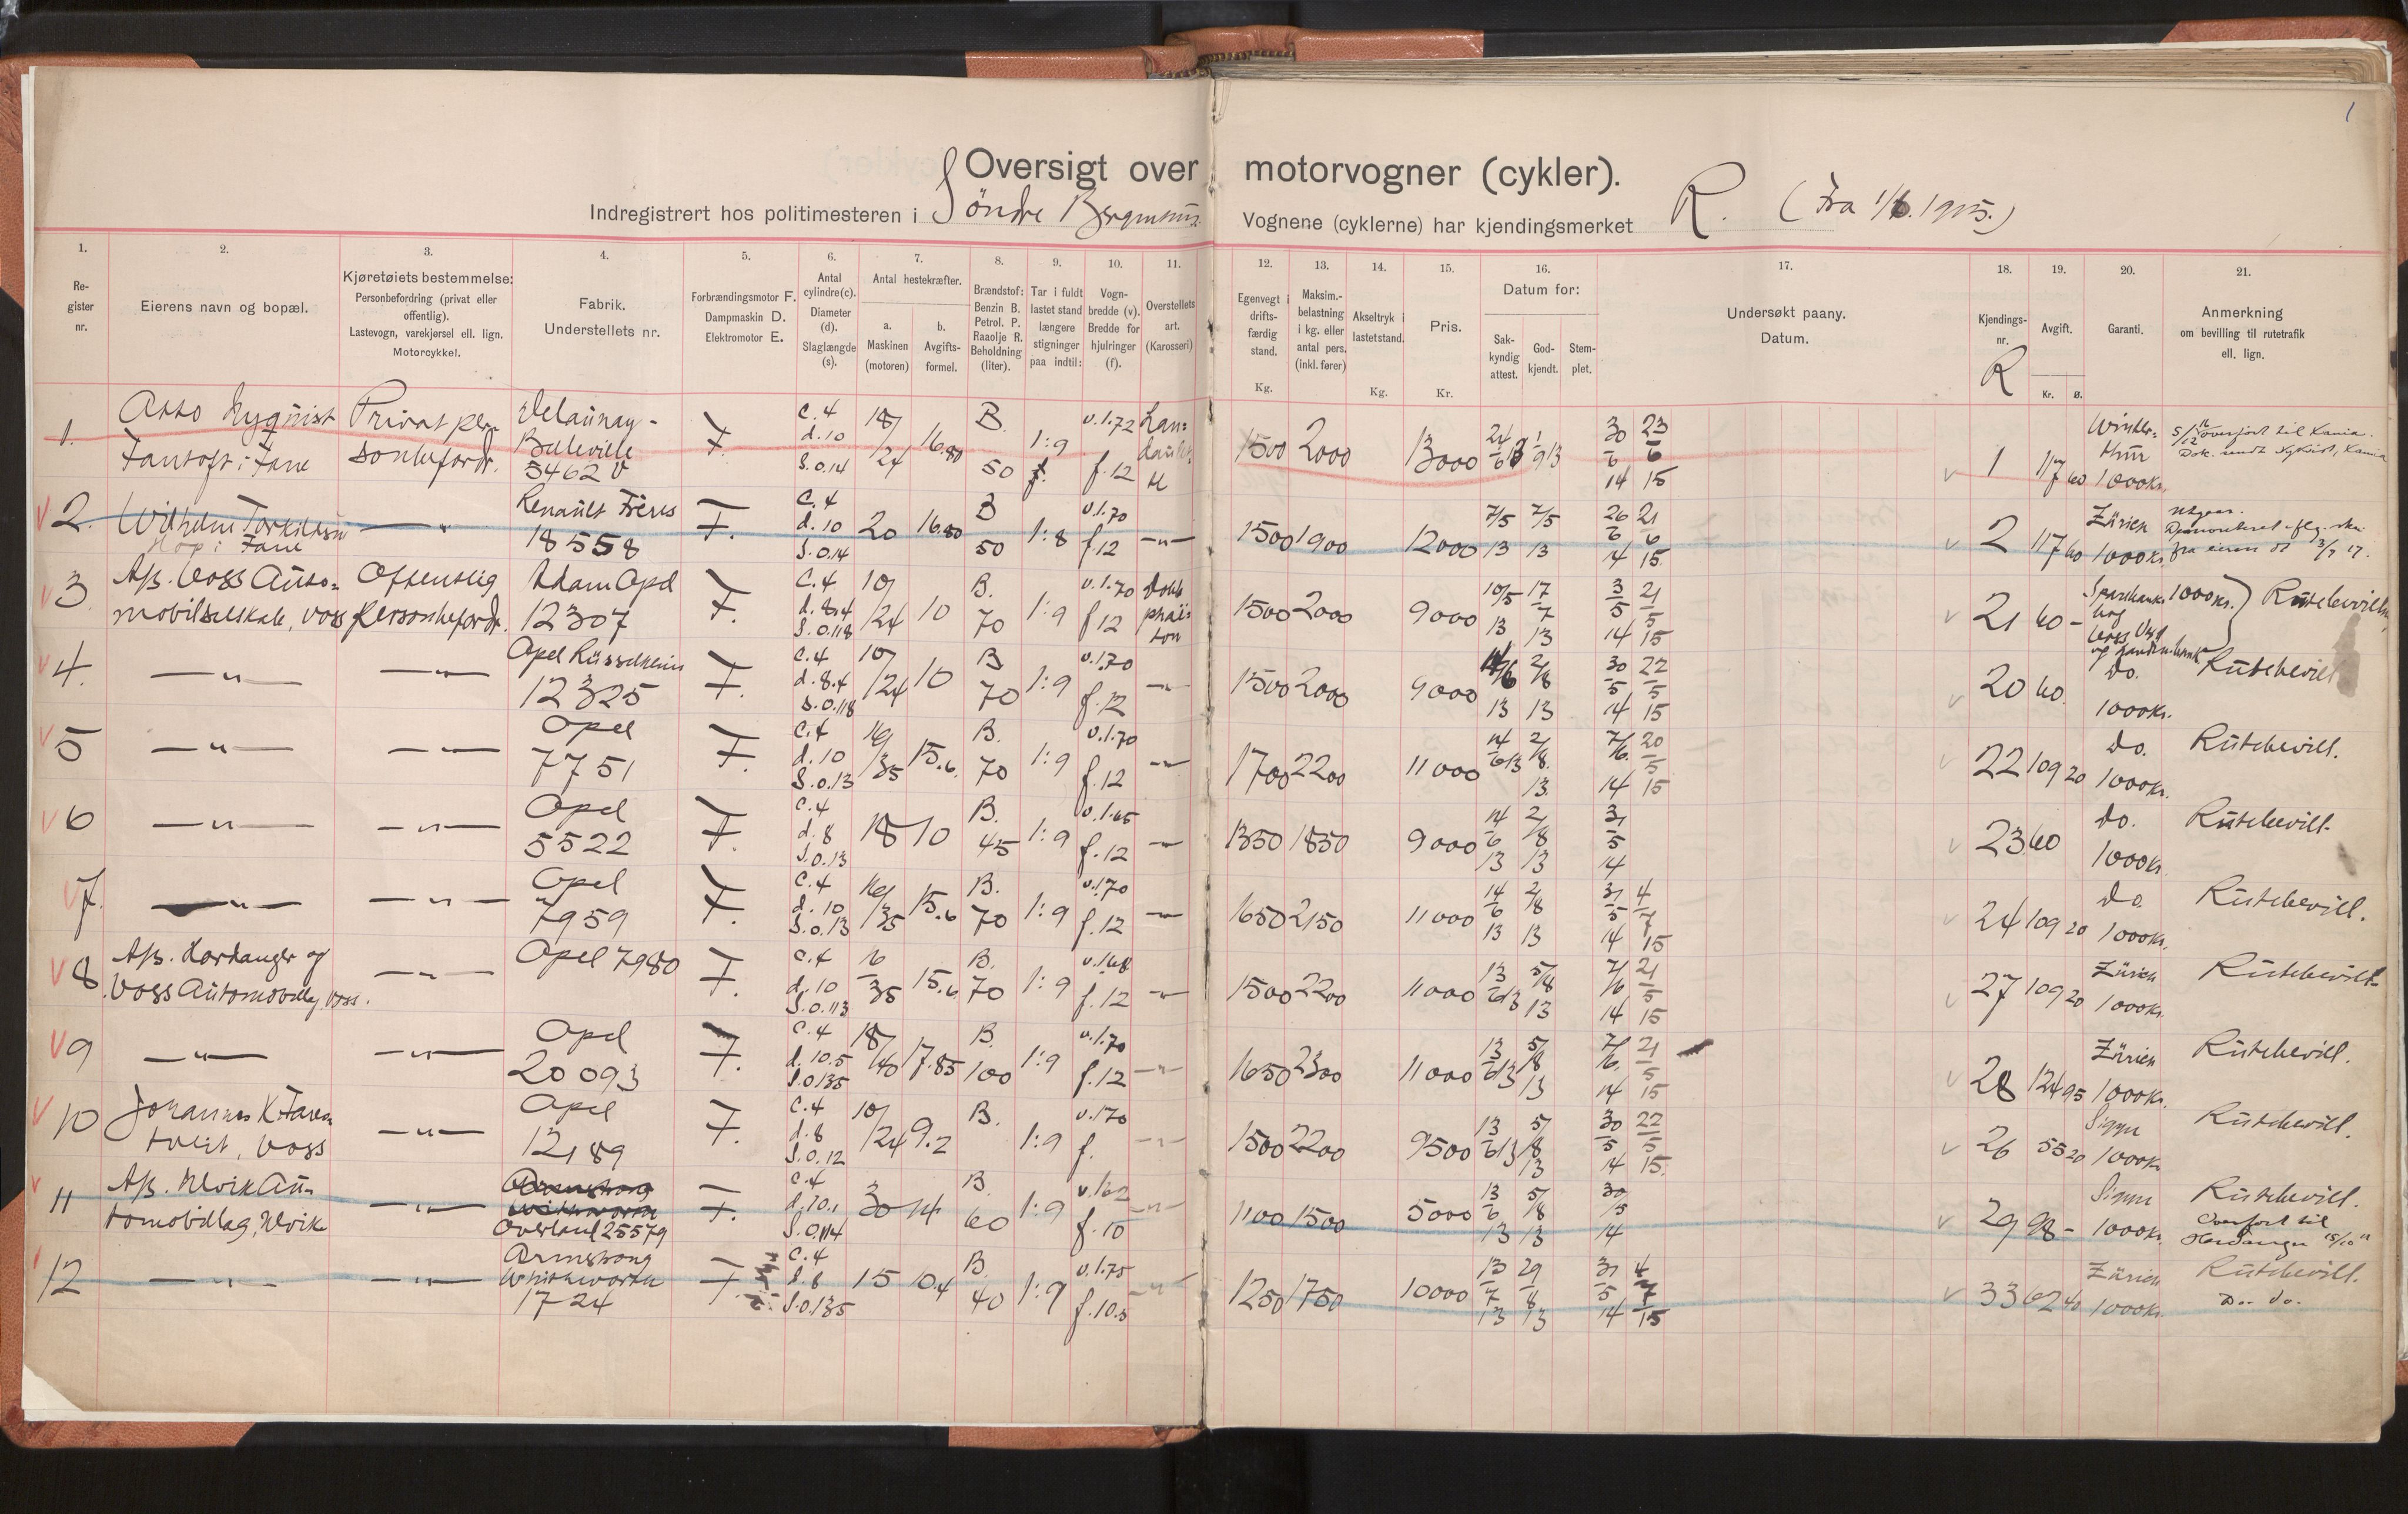 1
Oversigt over motorvogner (cykler).
Indregistrert hos politimesteren i Söndre Bergenhus. Vognene (cyklerne) har kjendingsmerket R. (Fra 1/6. 1915.)
1. Register nr.
2. Eierens navn og bopæl.
3. Kjøretøiets bestemmelse: Personbefordring (privat eller offentlig). Lastevogn, varekjørsel ell. lign. Motorcykkel.
4. Fabrik. Understellets nr.
5. Forbrændingsmotor F. Dampmaskin D. Elektromotor E.
6. Antal cylindre(c). Diameter (d). Slaglængde (s).
7. Antal hestekræfter. a. Maskinen (motoren) b. Avgifts-formel.
8. Brændstof: Benzin B. Petrol. P. Raaolje R. Beholdning (liter).
9. Tar i fuldt lastet stand længere stigninger paa indtil:
10. Vogn-bredde (v). Bredde for hjulringer (f).
11. Overstellets art. (Karosseri)
12. Egenvegt i drifts-færdig stand. Kg.
13. Maksim.-belastning i kg. eller antal pers. (inkl. fører)
14. Akseltryk i lastet stand. Kg.
15. Pris. Kr.
16. Datum for: Sak-kyndig attest. God-kjendt. Stem-plet.
17. Undersøkt paany. Datum.
18. Kjendings-nr. R
19. Avgift. Kr. ø.
20. Garanti.
21. Anmerkning om bevilling til rutetrafik ell. lign.
1. Otto Nyquist Privat per- Delaunay- c.4 18/ B. v.1.72 Lan=
Fantoft i Fane sonbefordr. Belleville F. d.10 /24 16.80 1:9 daulet
5462 V s.0.14 50 f.12
1500 2000 13000 24/6 13 1/9 13 30/6 14 23/6 15 1 117 60 1000 kr. 5/12 overført til Xania.
2. Wilhelm Torkildsen — " Renault Frères F. c.4 20 16.80 B 1:8 v.1.70 — " —
Hop i Fane 18558 d.10 s.0.14 50 f.12
1500 1900 12000 7/5 13 7/5 13 26/6 14 21/6 15. 2 117 60 Zürich 1000 kr. utgaar. Demonteret flg. skr. fra eieren dt 3/7 17.
3. A/s. Voss Auto= Offentlig Adam Opel F. c.4 10/ B. v.1.70 Dobb
mobilselskab, Voss Personbefordr. 12307 d.8.4 /24 10 70 1:9 f 12 phaë-
s.0.118 ton
1500 2000 9000 10/5 13 17/7 13 3/5 14 21/5 15 21 60 - 1000 kr. Rutebevilln.
4. — " — — " — Opel Rüsselheim F. c.4 10/ B v.1.70
12325 d.8.4 /24 10 70 1:9 f.12 — " —
s.0.118
1500 2000 9000 13 2/8 13 30/5 14 22/5 15 20 60 Do. 1000 kr. Rutebevill
5 — " — — " — Opel F. c.4 16/ B. v.1.70
7751 d.10 /35 15.6. 70 1:9 f.12 — " —
s.0.13
1700 2200 11000 14/6 13 2/8. 13. 7/6. 14 20/5 15 22 109 20 Do. 1000 kr. Rutebevill.
6 — " — — " — Opel F. c.4 18 10 B. v.1.65
5522 d.8 45 1:9 f.12 — " —
s.0.13
1350 1850 9000 14/6 13 2/8 13 31/5 14 23 60 Do. 1000 kr. Rutebevill.
7. — " — — " — Opel F. c.4 16/ B. v.1.70
7959 d.10 /35 15.6 70 1:9 f.12 — " —
s.0.13
1650 2150 11000 14/6 13 2/8 13 31/5 14 4/7 15 24 109 20 Do 1000 kr. Rutebevill.
8. A/s. Hardanger og — " — Opel 7980 F. c.4 16 B. v.1.68
Voss Automobillag, Voss. d.10 35 15.6 70 1:9 f.12 — " —
s.0.113
1500 2200 11000 13/6 13 5/8 13 7/6 14 21/5 15 27 109 20 Zürich 1000 kr. Rutebevill
9 — " — — " — Opel F. c.4 18/ B. v.1.70
20093 d.10.5 /40 17.85 100 1:9 f.12 — " —
s.0135
1650 2300 11000 13/6 13 5/8 13 7/6. 14 21/5 15 28 124 95 Zürich 1000 kr. Rutebevill.
10 Johannes K. — " — Opel F. c.4 10/ B. v.170
tveit, Voss 12189 d.8 /24 9.2 1:9 f. — " —
s.0.12
1500 2200 9500 13/6 13 5/8 13 30/5 14 22/5 15. 26 55 20 Sigyn 1000 kr Rutebevill.
11 A/s. Ulvik Au- — " — Armstrong Whitworth F. c.4 30 14 B. v.162
tomobillag, Ulvik Overland 25579 d.10.1 60 1:9 f.10 — " —
s.0.114
1100 1500 5000 13/6 13 5/8 13 30/5 14 29 98 - Sigyn 1000 kr. Rutebevill. Overført til Hardanger
12 — " — — " — Armstrong F. c.4 15 10.4 B. v.1.75
Whithworth d.8 40 1:9 f.10.5 — " —
1724 s.0.135
1250 1750 10000 13/7 13 29/8 13 31/5 14 4/7 15 33 62 40 Zürich 1000 kr. Rutebevill. Do. do.